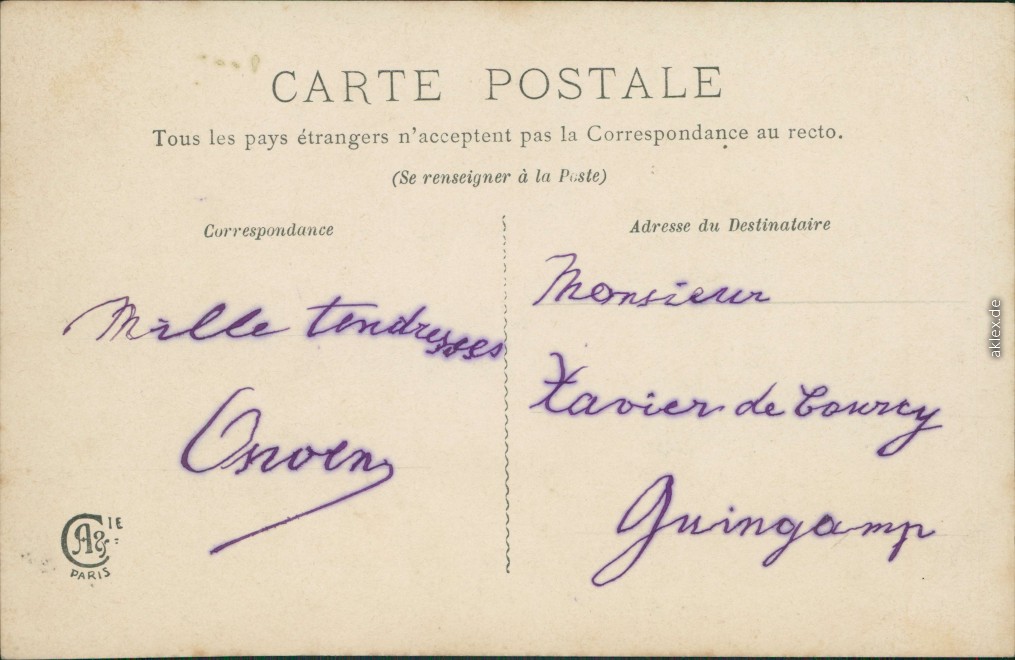 CARTE POSTALE
Tous les pays étrangers n'acceptent pas la Correspondance au recto.
(Se renseigner à la Poste)
Correspondance
Mille tendresses
Adresse du Destinataire
Monsieur
Xavier de Courcy
Guingamp
A & CIE
PARIS
aklex.de